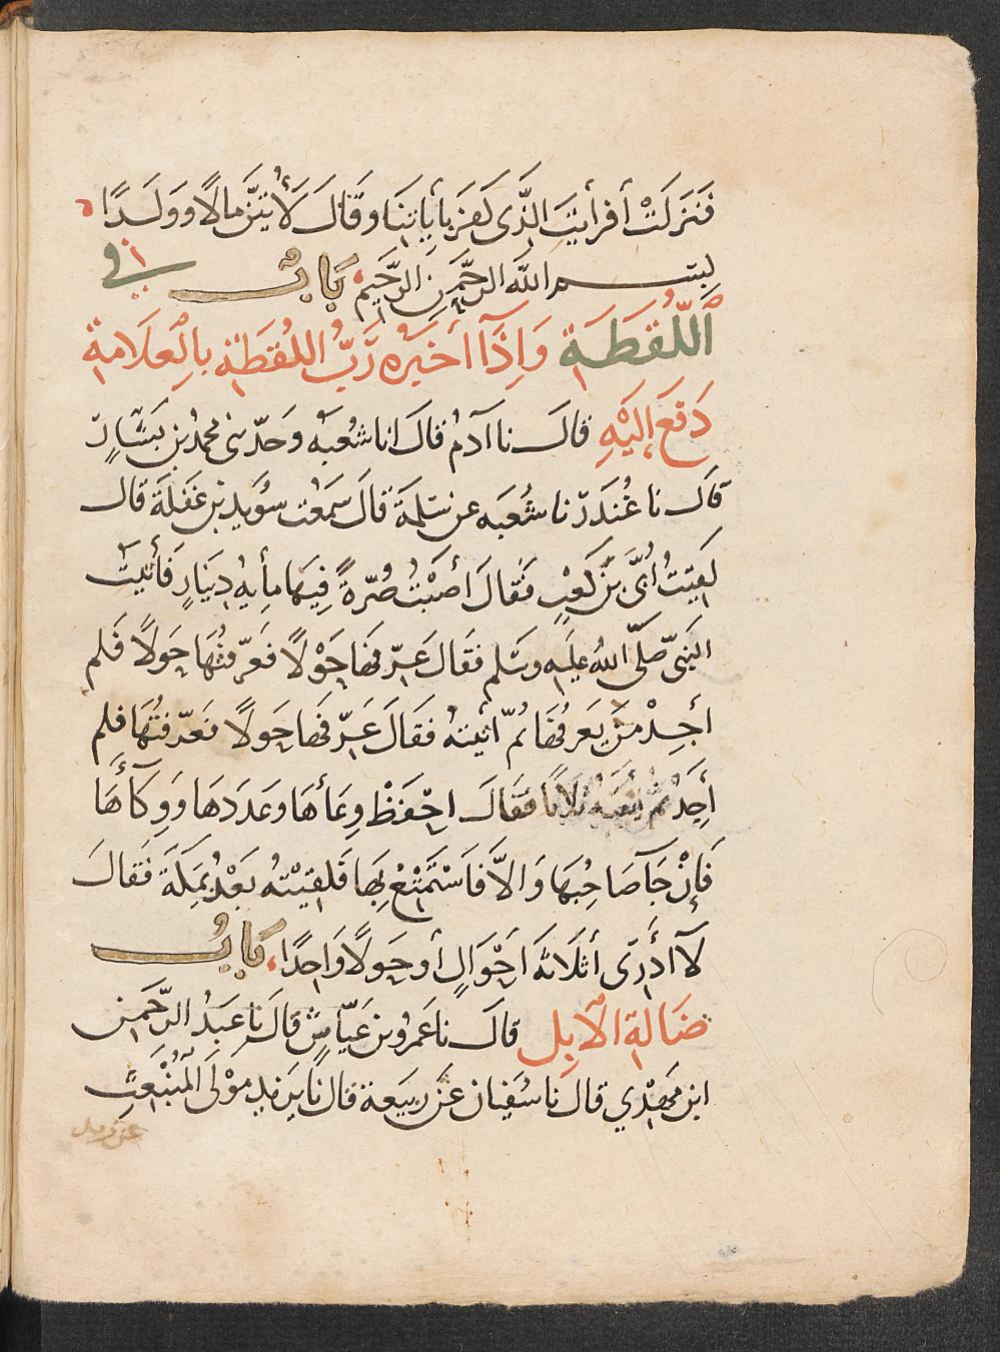 فَنَزَلَتْ أَفَرَأَيْتَ الَّذِي كَفَرَ بِأَيَاتِنَا وَقَالَ لَأُوتَيَنَّ مَالًا وَوَلَدًا
بسم الله الرحمن الرحيم بَابٌ فِي
اللُّقَطَةِ وَإِذَا أَخْبَرَهُ رَبُّ اللُّقَطَةِ بِالْعَلَامَةِ
دَفَعَ إِلَيْهِ قال نا آدم قال نا شعبة وحدثني محمد بن بشار
قال نا غُنْدَر نا شعبة عن سلمة قال سمعت سويد بن غفلة قال
لَقِيتُ أُبَيَّ بْنَ كَعْبٍ فَقَالَ أَصَبْتُ صُرَّةً فِيهَا مِأْيَةُ دِينَارٍ فَأَتَيْتُ
النبي صلى الله عليه وسلم فقال عَرِّفْهَا حَوْلًا فَعَرَّفْتُهَا حَوْلًا فَلم
أَجِدْ مَنْ يَعْرِفُهَا ثُمَّ أَتَيْتُهُ فَقَالَ عَرِّفْهَا حَوْلًا فَعَرَّفْتُهَا فلم
أَجِدْ ثُمَّ أَتَيْتُهُ ثَلَاثًا فَقَالَ احْفَظْ وِعَاءَهَا وَعَدَدَهَا وَوِكَاءَهَا
فَإِنْ جَآ صَاحِبُهَا وَإِلَّا فَاسْتَمْتِعْ بِهَا فَلَقِيتُهُ بَعْدُ بِمَكَّةَ فَقَالَ
لَا أَدْرِي أَثَلَاثَةَ أَحْوَالٍ أَوْ حَوْلًا وَاحِدًا بَابُ
ضَالَّةِ الْإِبِلِ قال نا عَمْرُو بن عَبَّاسٍ قال نا عَبْدُ الرَّحْمَنِ
ابن مَهْدِي قال نا سُفْيَان عَنْ رَبِيعَة قال نا يَزِيد مَوْلَى الْمُنْبَعِثِ